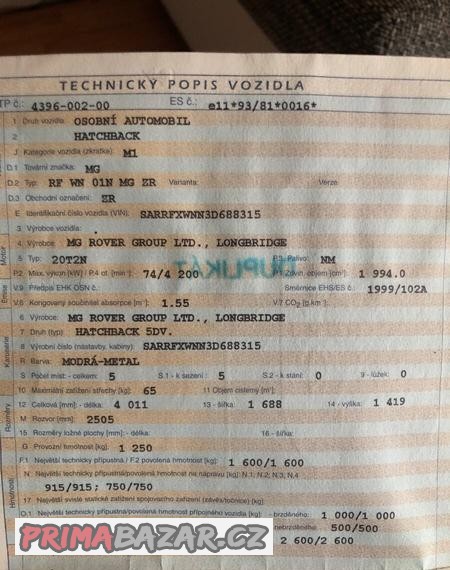 TECHNICKÝ POPIS VOZIDLA
TP č.: 4396-002-00 ES č.: e11*93/81*0016*
1 Druh vozidla: OSOBNÍ AUTOMOBIL
2 HATCHBACK
J Kategorie vozidla (zkratka): M1
D.1 Tovární značka: MG
D.2 Typ: RF WN 01N MG ZR Varianta: Verze:
D.3 Obchodní označení: ZR
E Identifikační číslo vozidla (VIN): SARRFXWNN3D688315
3 Výrobce vozidla:
4 Výrobce: MG ROVER GROUP LTD., LONGBRIDGE
5 Typ: 20T2N P.3 Palivo: NM
P.2 Max. výkon [kW] / P.4 ot. [min⁻¹]: 74/4 200 P.1 Zdvih. objem [cm³]: 1 994.0
V.9 Předpis EHK OSN č. Směrnice EHS/ES č.: 1999/102A
V.6 Korigovaný součinitel absorpce [m⁻¹]: 1.55 V.7 CO₂ [g.km⁻¹]:
6 Výrobce: MG ROVER GROUP LTD., LONGBRIDGE
7 Druh (typ): HATCHBACK 5DV.
8 Výrobní číslo (nástavby, kabiny): SARRFXWNN3D688315
R Barva: MODRÁ-METAL
S Počet míst - celkem: 5 S.1 - k sezení: 5 S.2 - k stání: 0 9 - lůžek: 0
10 Maximální zatížení střechy [kg]: 65 11 Objem cisterny [m³]:
12 Celková [mm]: - délka: 4 011 13 - šířka: 1 688 14 - výška: 1 419
M Rozvor [mm]: 2505
15 Rozměry ložné plochy [mm]: - délka: 16 - šířka:
G Provozní hmotnost [kg]: 1 250
F.1 Největší technicky přípustná / F.2 povolená hmotnost [kg]: 1 600/1 600
N Největší technicky přípustná/povolená hmotnost na nápravu [kg]: N.1, N.2, N.3, N.4
915/915; 750/750
17 Největší svislé statické zatížení spojovacího zařízení (závěs/točnice) [kg]:
O.1 Největší technicky přípustná/povolená hmotnost přípojného vozidla [kg]: - brzděného: 1 000/1 000
nebrzděného 500/500
2 600/2 600
DUPLIKÁT
Motor
Emise
Karoserie
Rozměry
Hmotnosti
PRIMABAZAR.CZ